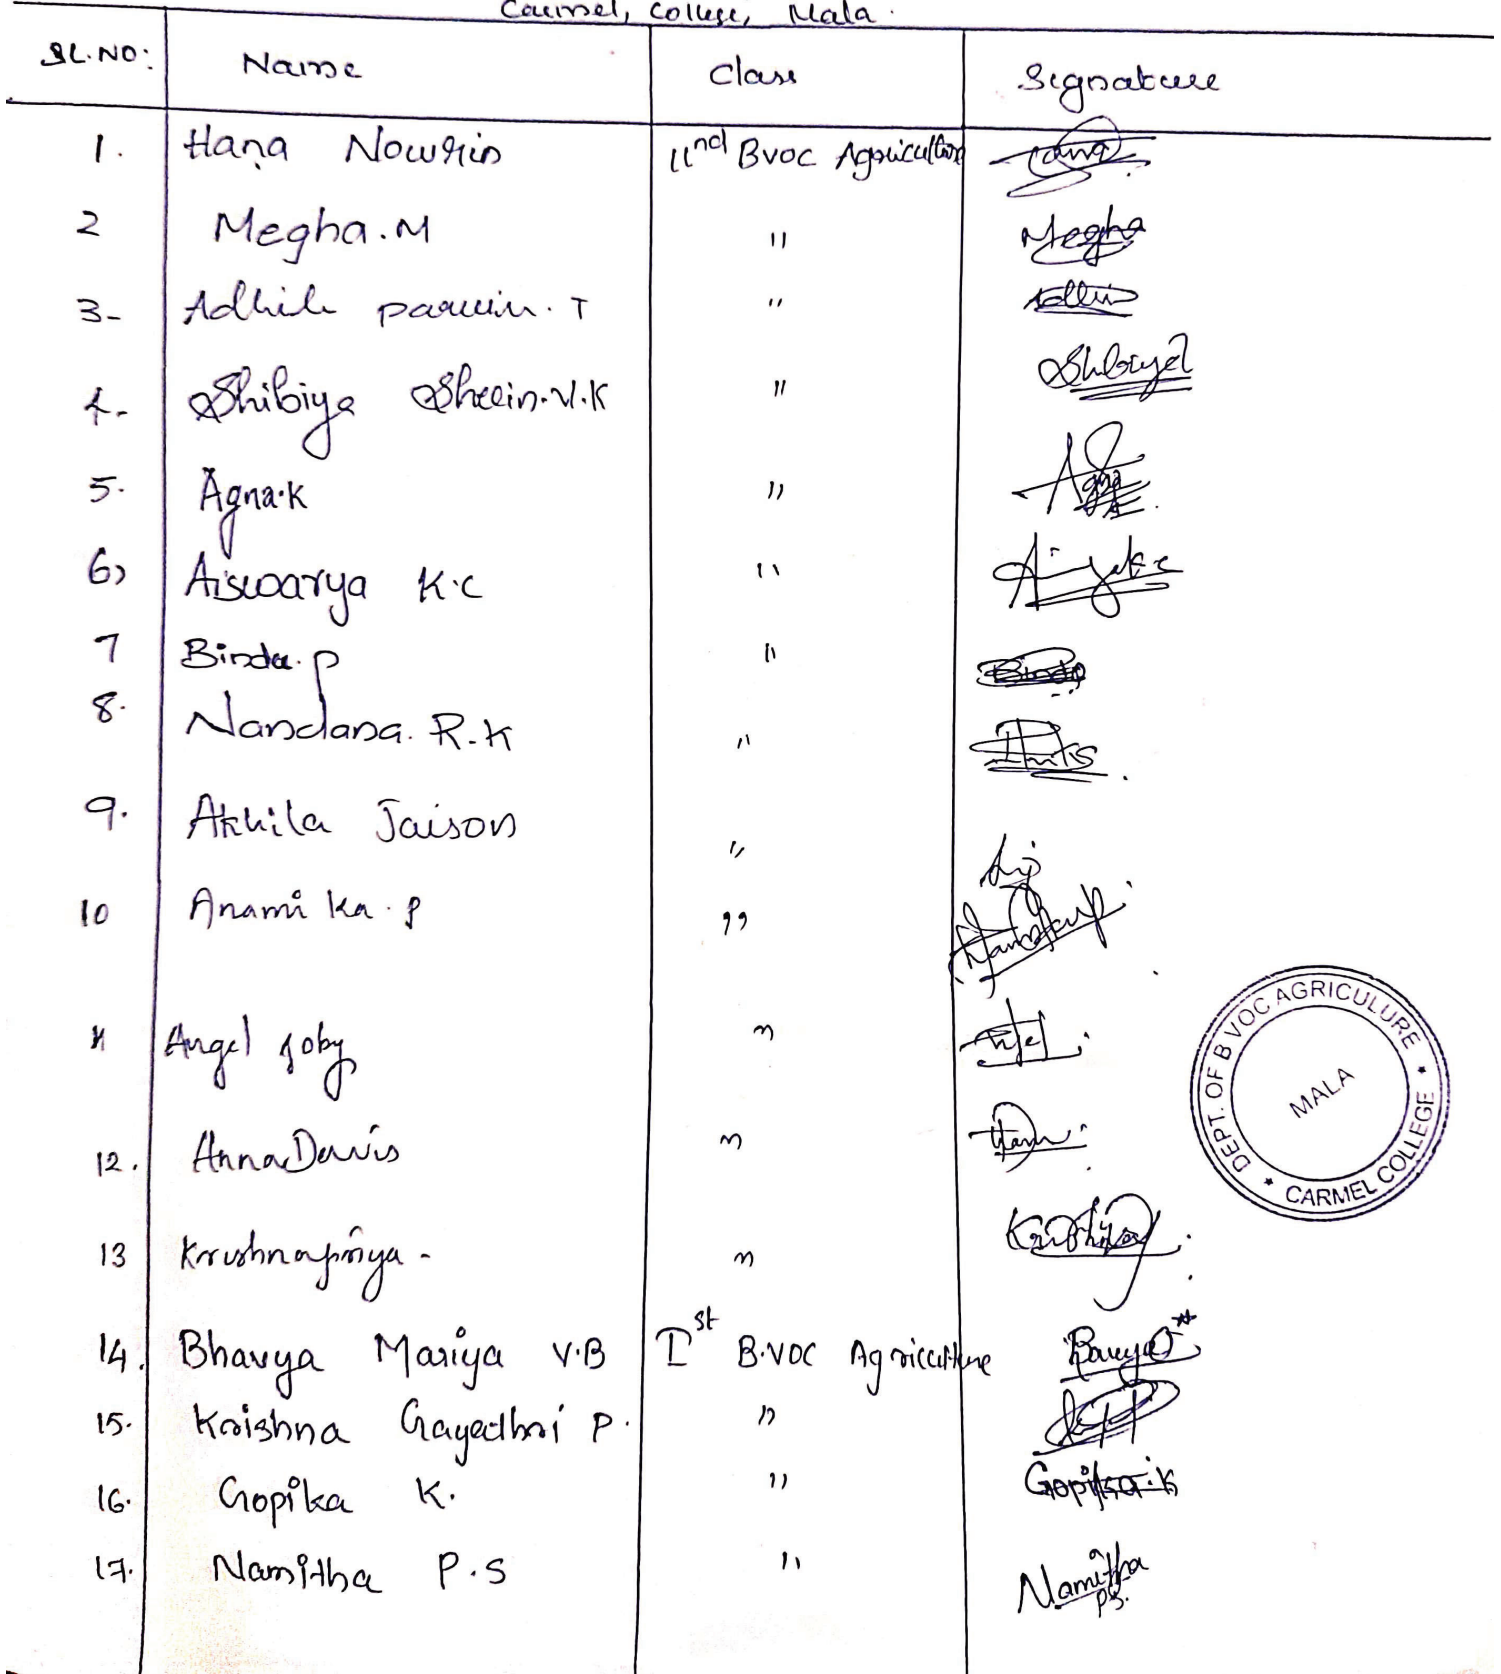 Carmel, College, Mala.
SL.NO: Name Class Signature
1. Hana Nowrin IInd Bvoc Agriculture
2 Megha.M " Megha
3- Adhila parvin. T "
4- Shibiya Sherin.V.K "
5. Agna.K " Agna
6) Aiswarya K.C "
7 Binda.P "
8. Nandana. R.K "
9. Akhila Jaison "
10 Anamika.P "
11 Angel Joby " Angel
12. Anna Davis "
13 Krishnapriya - "
14. Bhavya Mariya V.B Ist B.VOC Agriculture
15. Krishna Gayathri P. "
16. Gopika K. " Gopika.K
17. Namitha P.S " Namitha P.S.
DEPT. OF B VOC AGRICULURE * CARMEL COLLEGE *
MALA